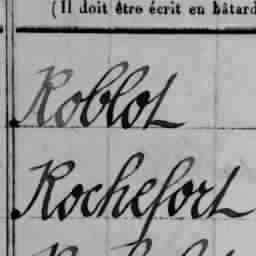 (Il doit être écrit en bâtard
Roblot
Rochefort